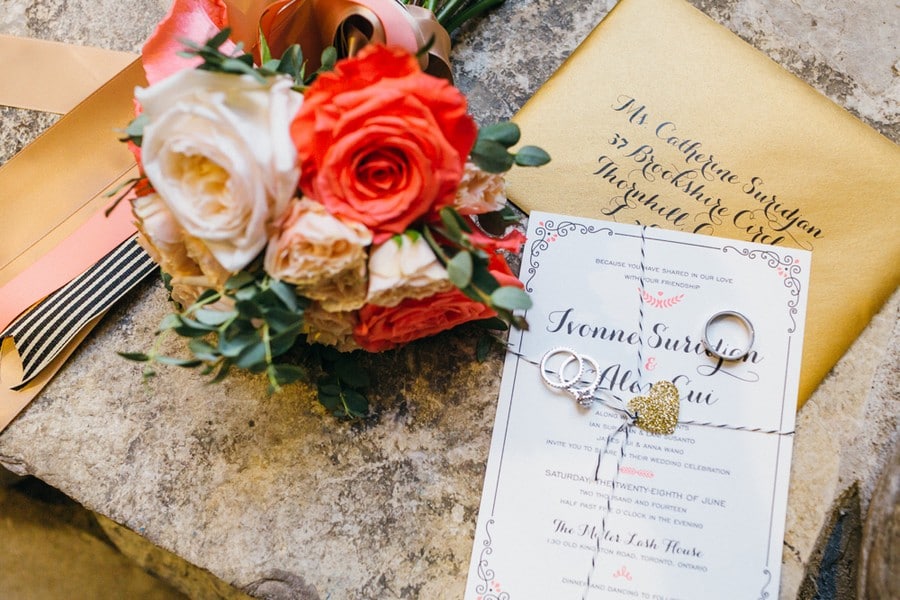 Ms. Catherine Surdjan
37 Brookshire Circl
Thornhill
BECAUSE YOU HAVE SHARED IN OUR LOVE
WITH YOUR FRIENDSHIP
Ivonne Surdjan
&
Alan Cui
ALONG
IAN
& ANNA WANG
INVITE YOU TO SHARE THEIR WEDDING CELEBRATION
SATURDAY, THE TWENTY-EIGHTH OF JUNE
TWO THOUSAND AND FOURTEEN
HALF PAST FIVE O'CLOCK IN THE EVENING
The Miller Lash House
OLD KINGSTON ROAD TORONTO, ONTARIO
DINNER AND DANCING TO